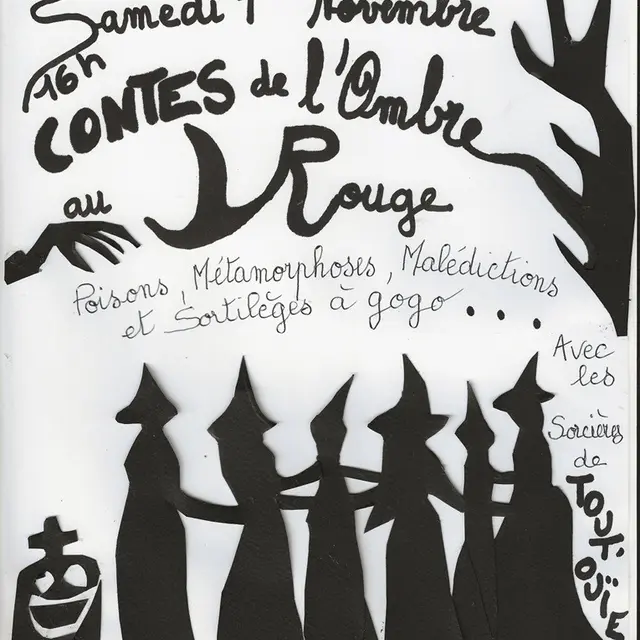 Samedi 1 Novembre
16h
CONTES de l'Ombre
au
Rouge
Poisons, Métamorphoses, Malédictions
et Sortilèges à gogo...
Avec
les
Sorcières
de
TOUT'OUÏE